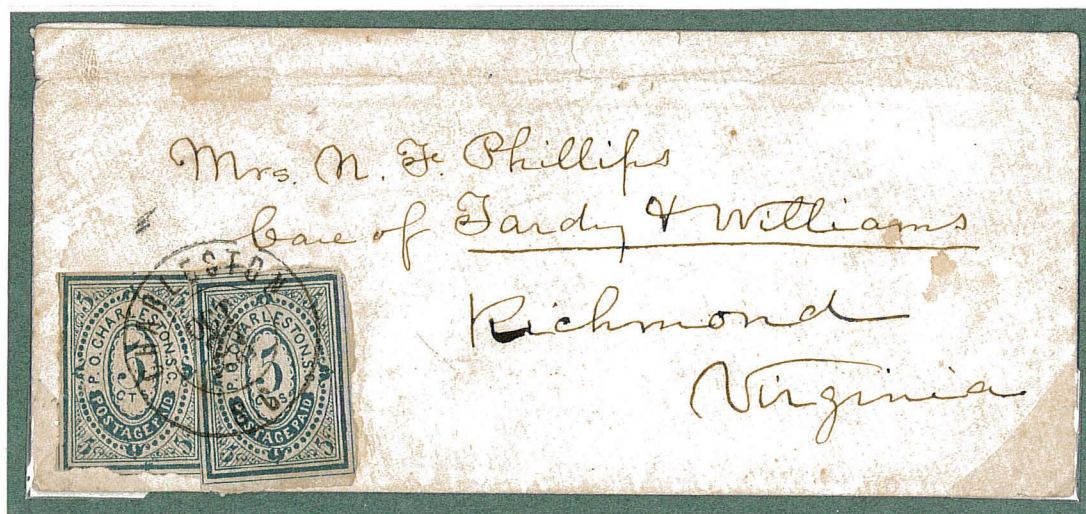 Mrs. N. F. Phillips
Care of Tardy & Williams
Richmond
Virginia
CHARLESTON
P.O. CHARLESTON. S.C.
5
CTS
POSTAGE PAID
P.O. CHARLESTON. S
5
S
POSTAGE PAID